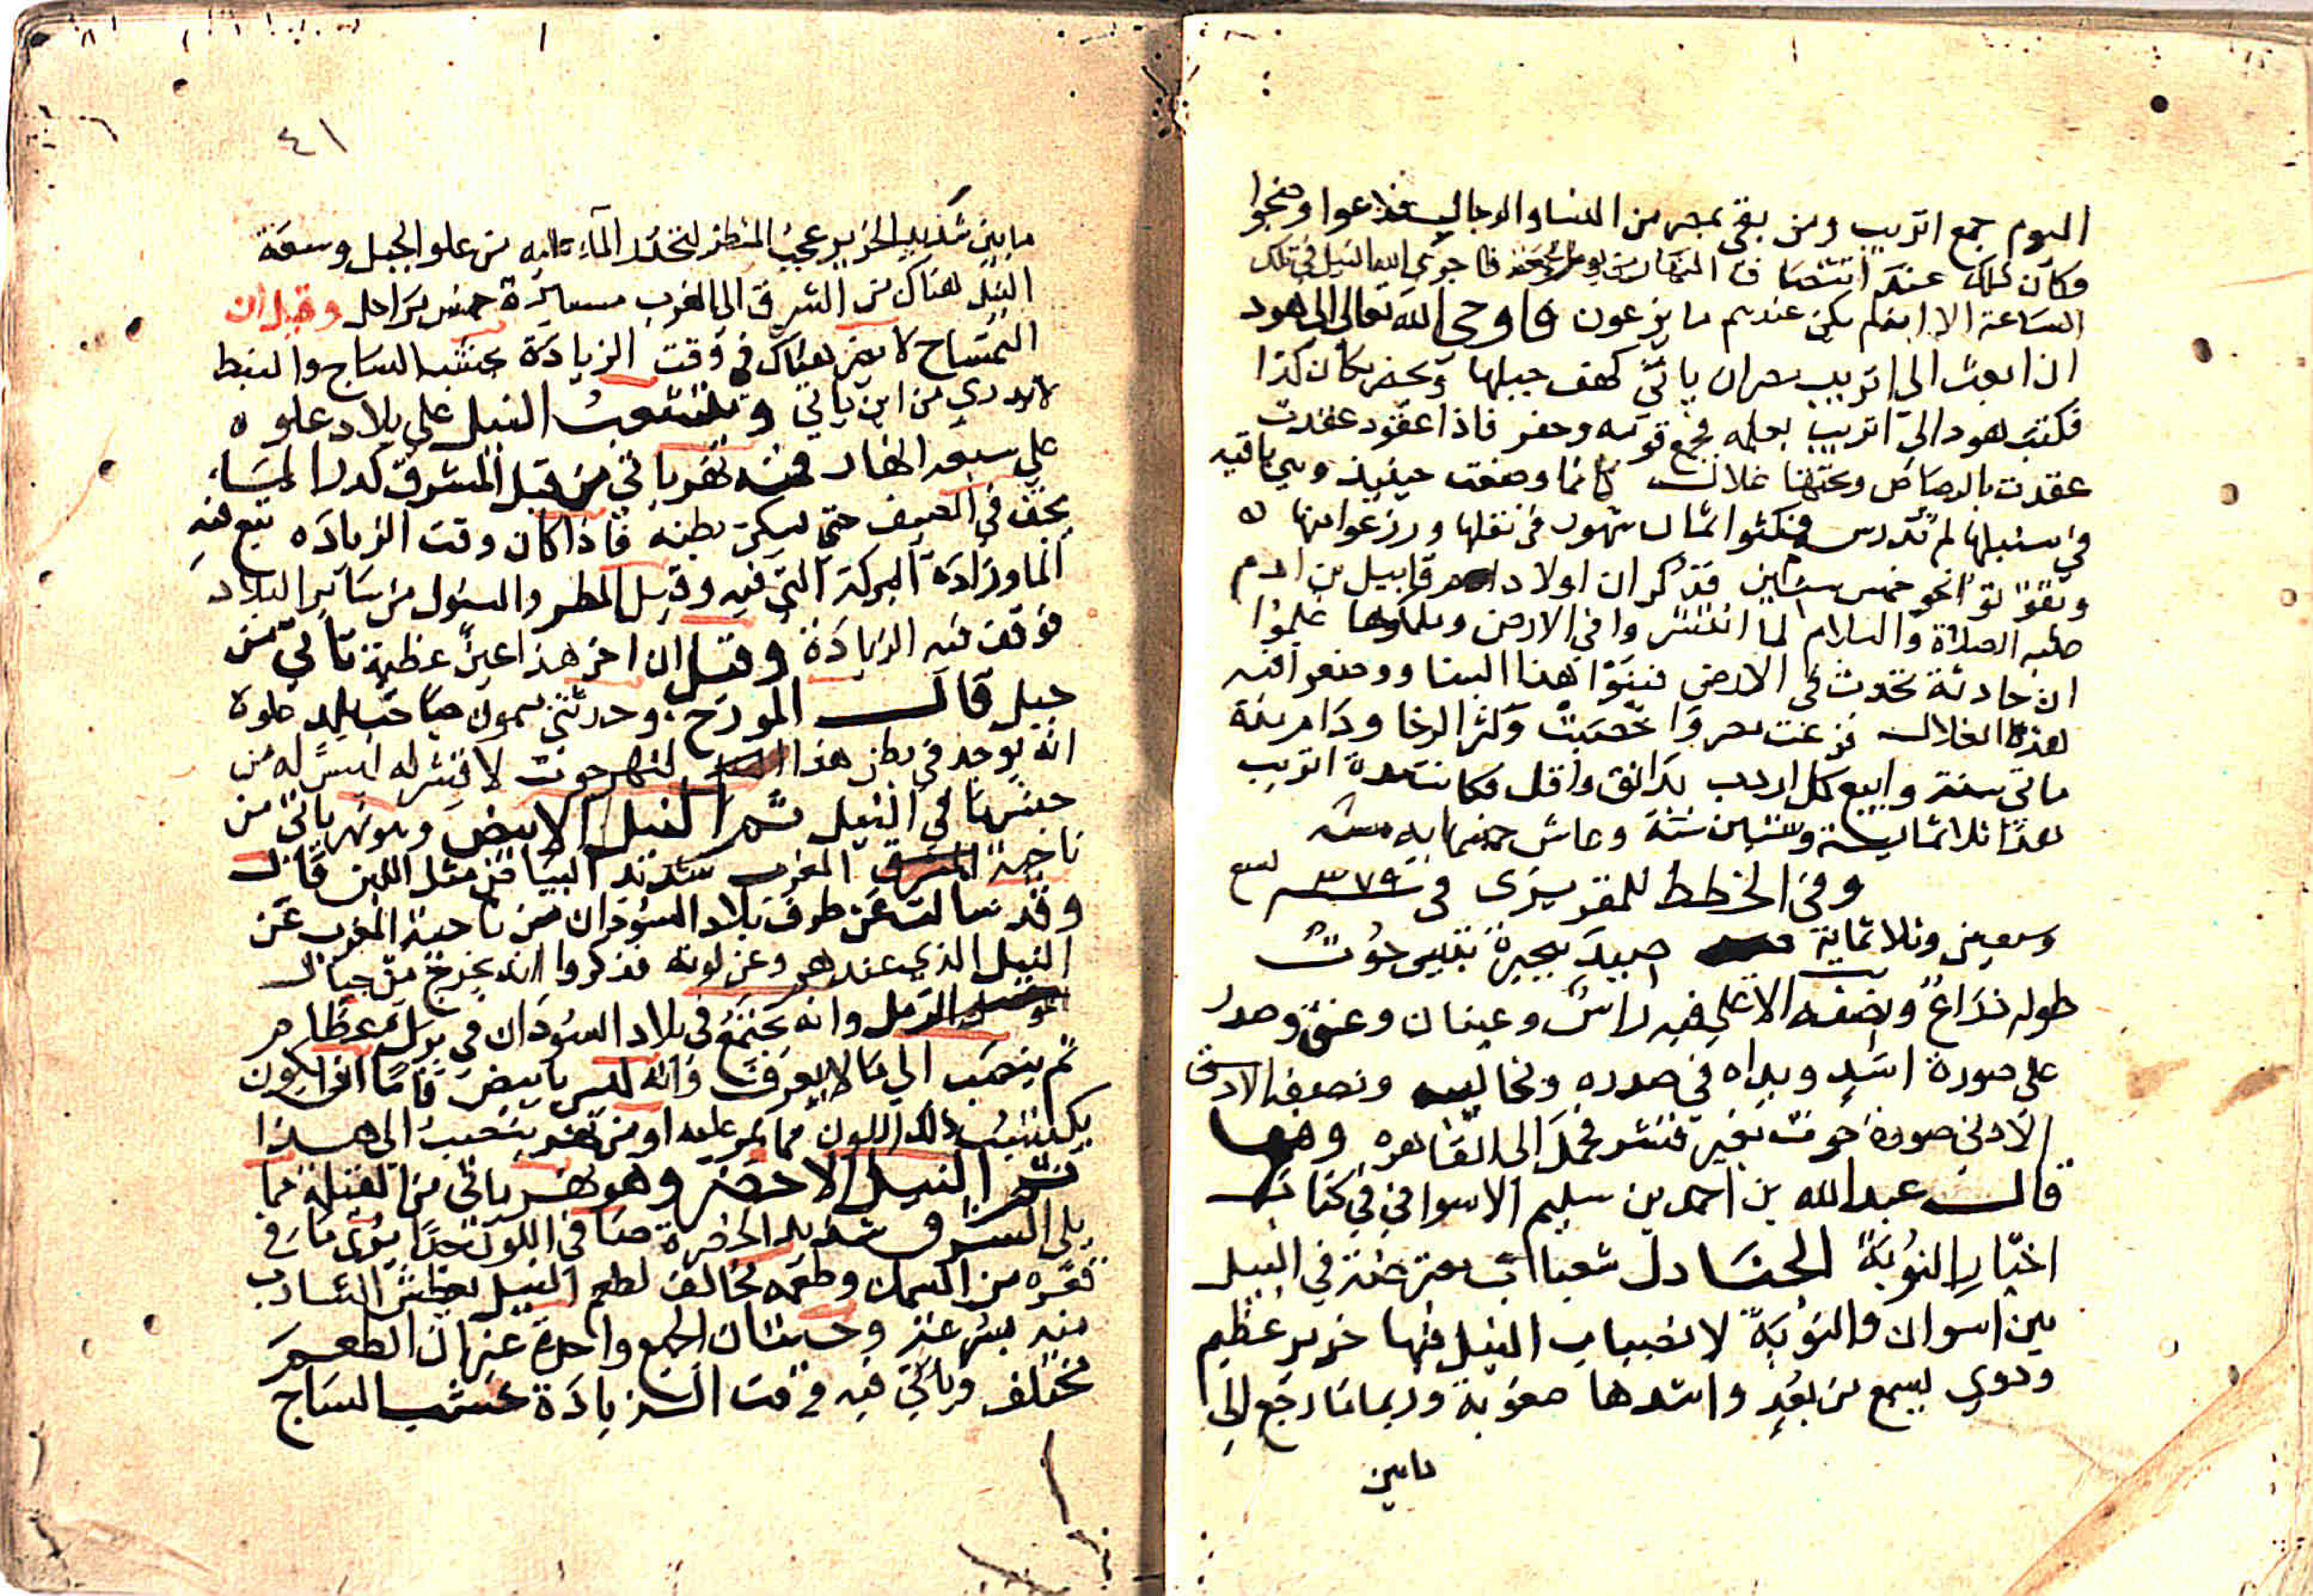 اليوم جمع اتريب ومن بقي بمصر من النسا والرجال فدعوا وضجوا
وكان ذلك عند انتصاف النهار من يوم فاجري الله النيل في تلك
الساعة الا انهم لم يكن عندهم ما يزرعون فاوحي الله تعالى الى هود
ان ابعث الى اتريب بمصر ان ياتي كهف جبلها ويحفر بمكان كذا
فكتب هود الى اتريب بعلمه فجمع قومه وحفر فاذا عقود عقدت
عقدت بالرصاص وتحتها غلال كانما وضعت حينيذ وهي باقيه
في سنبلها لم تدرس فمكثوا ثمان شهور في نقلها وزرعوا منها
وتقوتوا نحو خمس سنين فذكر ان اولاد قابيل بن ادم
عليه الصلاة والسلام لما انتشروا في الارض وملكوها علموا
ان حادثة تحدث في الارض فبنوا هذا البنا ووضعوا فيه
هذه الغلال فزرعت مصر واخصبت وكثر الرخا ودام ريفه
ماتي سنة وابيع كل اردب بدانق واقل فكانت مدة اتريب
هذا ثلاثماية وستين سنة وعاش خمسماية سنه
وفي الخطط للمقريزي في سنة ٣٧٩ تسع
وسبعين وثلاثماية صيد ببحيرة تنيس حوت
طوله ذراع ونصفه الاعلي فيه راس وعينان وعنق وصدر
على صورة اسد ويداه في صدره ومخاليب ونصفه الادنى
الادني صورة حوت بغير قشر فحمل الى القاهره
قال عبد الله بن احمد بن سليم الاسواني في كتاب
اخبار النوبة الجنادل شعبات معترضة في النيل
بين اسوان والنوبة لانصباب النيل فيها خرير عظيم
ودوي يسمع من بعد واشدها صعوبة وربما نا رجع الى
مابين
٤١
مابين شديد الخرير عجيب المنظر لتحدر الماء عليه من علو الجبل وسعة
النيل هناك من الشرق الى الغرب مسايرة خمس مراحل وقيل ان
التمساح لا يضر هناك في وقت الزيادة خشب الساج والنبط
لا يدري من اين ياتي وتتشعب النيل علي بلاد علوه
علي سبعه انهار فمنه نهر ياتي من قبل المشرق كدر الماء
يجف في الصيف حتي يسكن بطنه فاذا كان وقت الزيادة نبع فيه
الما وزادة البركة التي فيه وقيل المطر والسيول من ساير البلاد
فوقف فيه الزيادة وقيل ان اخر هذا عين عظيمة تاتي من
جبل قال المورخ وحدثني سمون صاحب بلد علوة
انه يوجد في بطن هذا النهر حوت لا قشر له ليس له من
جنس ما في النيل ثم النيل الابيض وهو نهر ياتي من
ناحية المغرب شديد البياض مثل اللبن قال
وقد سالت عن طرف بلاد السودان من ناحية المغرب عن
النيل الذي عندهم وعن لونه فذكروا انه يخرج من جبال
الرمل وانه يجتمع في بلاد السودان في برك عظام
ثم ينصب الي ما لا يعرف وانه ليس بابيض فاما ان يكون
يكتسب ذلك اللون مما يمر عليه او من نهر ينصب الى هذا
ثم النيل الاخضر وهو نهر ياتي من القبلة مما
يلي الشرق شديد الخضرة صافي اللون جدا يرى ما في
قعره من السمك وطعمه مخالف لطعم النيل يعطش الشارب
منه بسرعة وحيتان الجميع واحدة غير ان الطعم
مختلف وياتي فيه وقت الزيادة خشب الساج